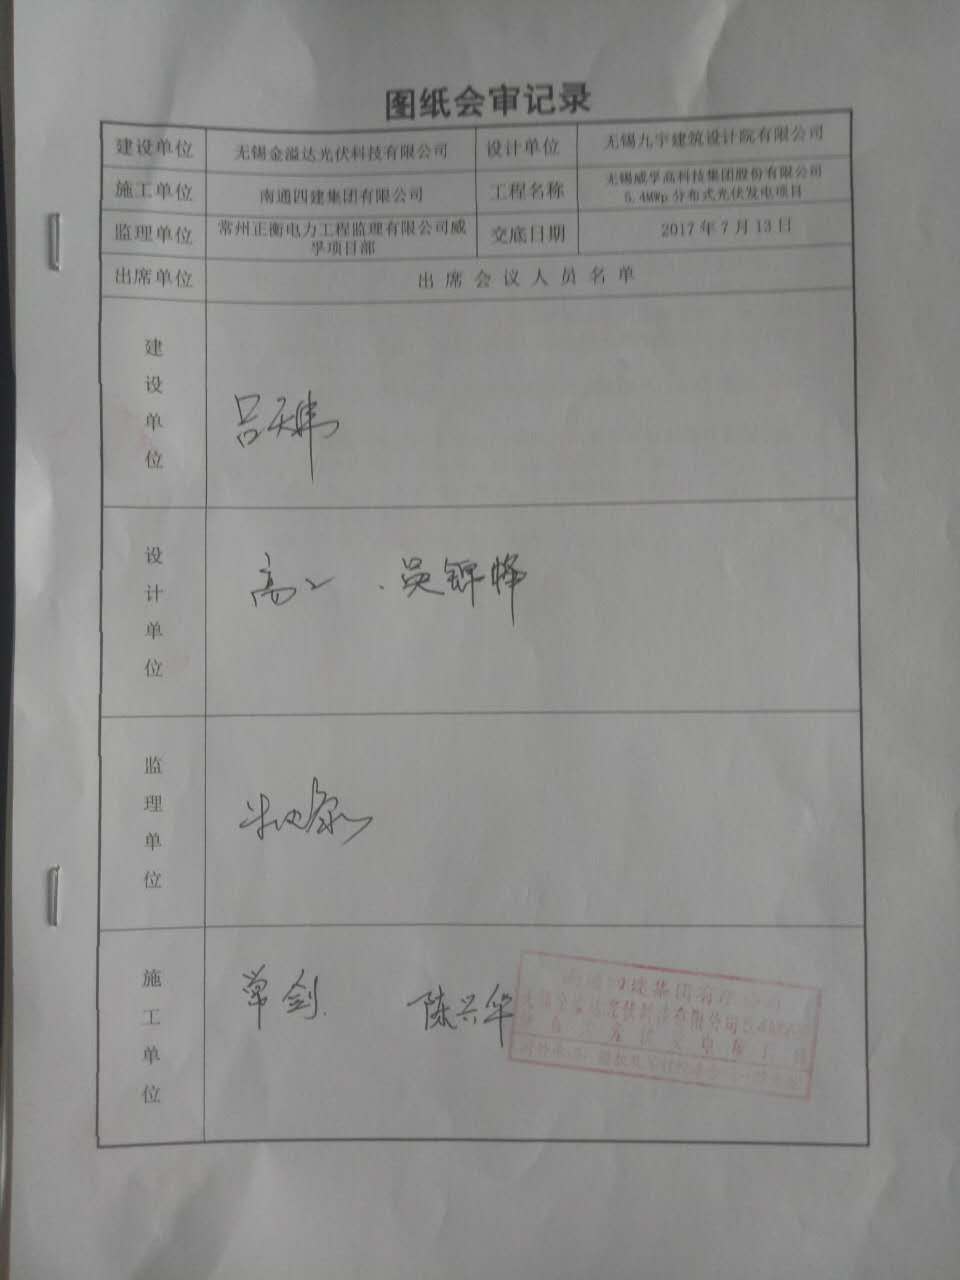 图纸会审记录
建设单位 无锡金溢达光伏科技有限公司 设计单位 无锡九宇建筑设计院有限公司
施工单位 南通四建集团有限公司 工程名称 无锡威孚高科技集团股份有限公司
5.4MWp 分布式光伏发电项目
监理单位 常州正衡电力工程监理有限公司威
孚项目部 交底日期 2017年7月13日
出席单位 出席会议人员名单
建设单位
吕天伟
设计单位
高 吴锦峰
监理单位
施工单位
常剑 陈兴华
南通四建集团有限公司